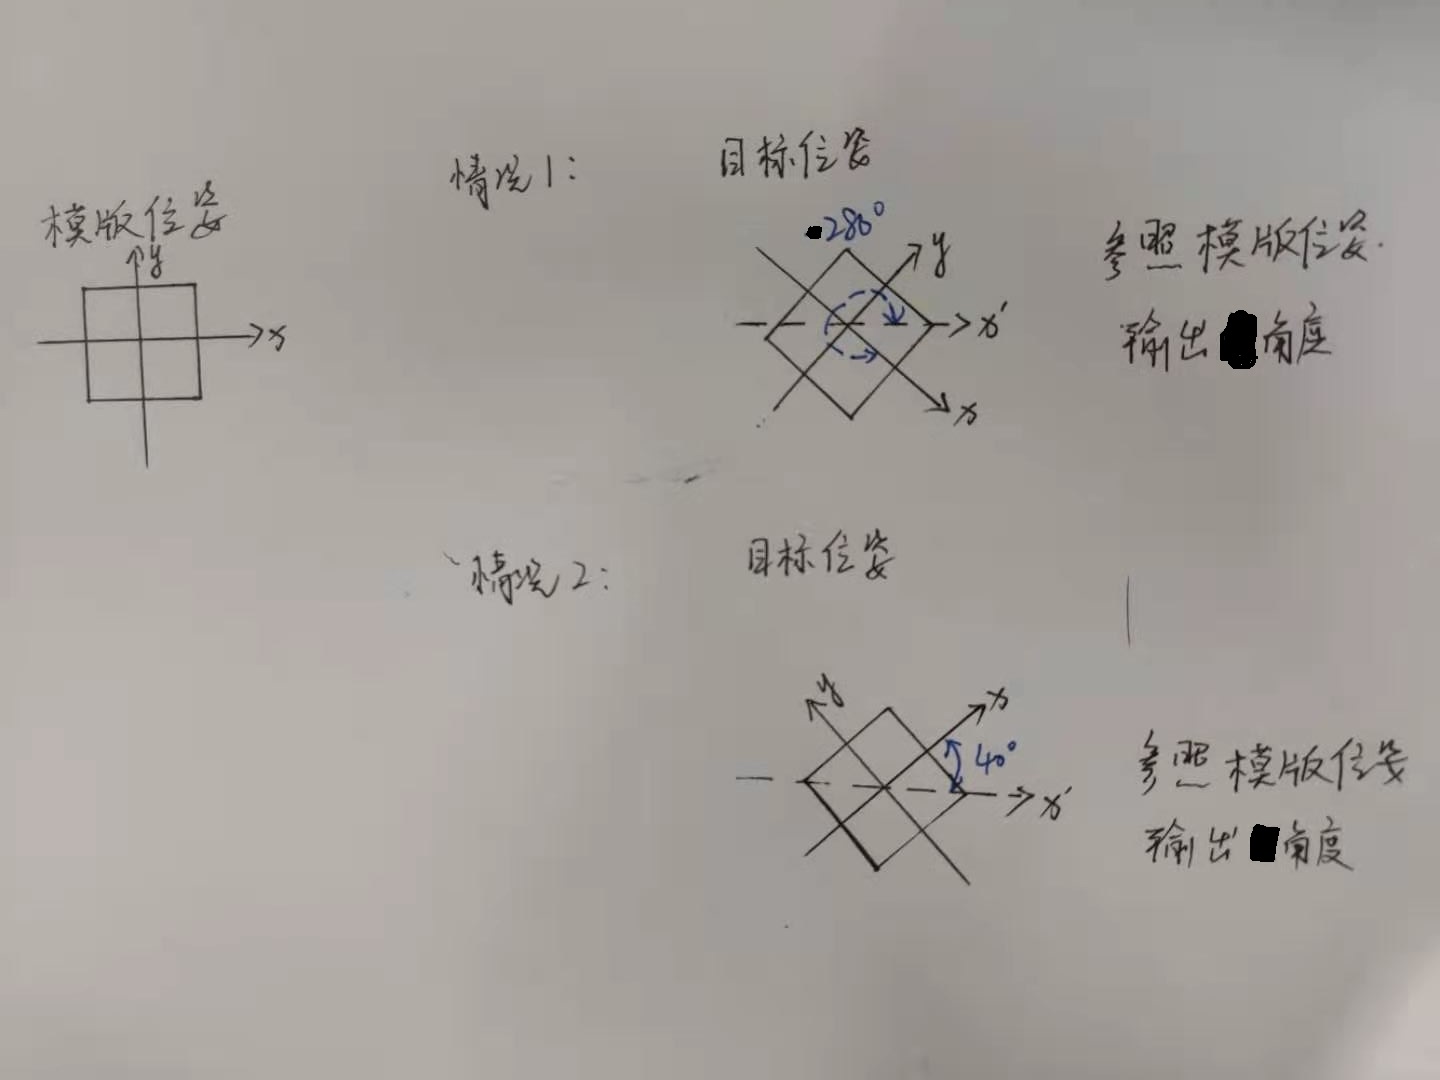 模版位姿
y
x
情况1:
目标位姿
280°
y
x'
x
参照模版位姿.
输出角度
情况2:
目标位姿
y
x
40°
x'
参照模版位姿
输出角度